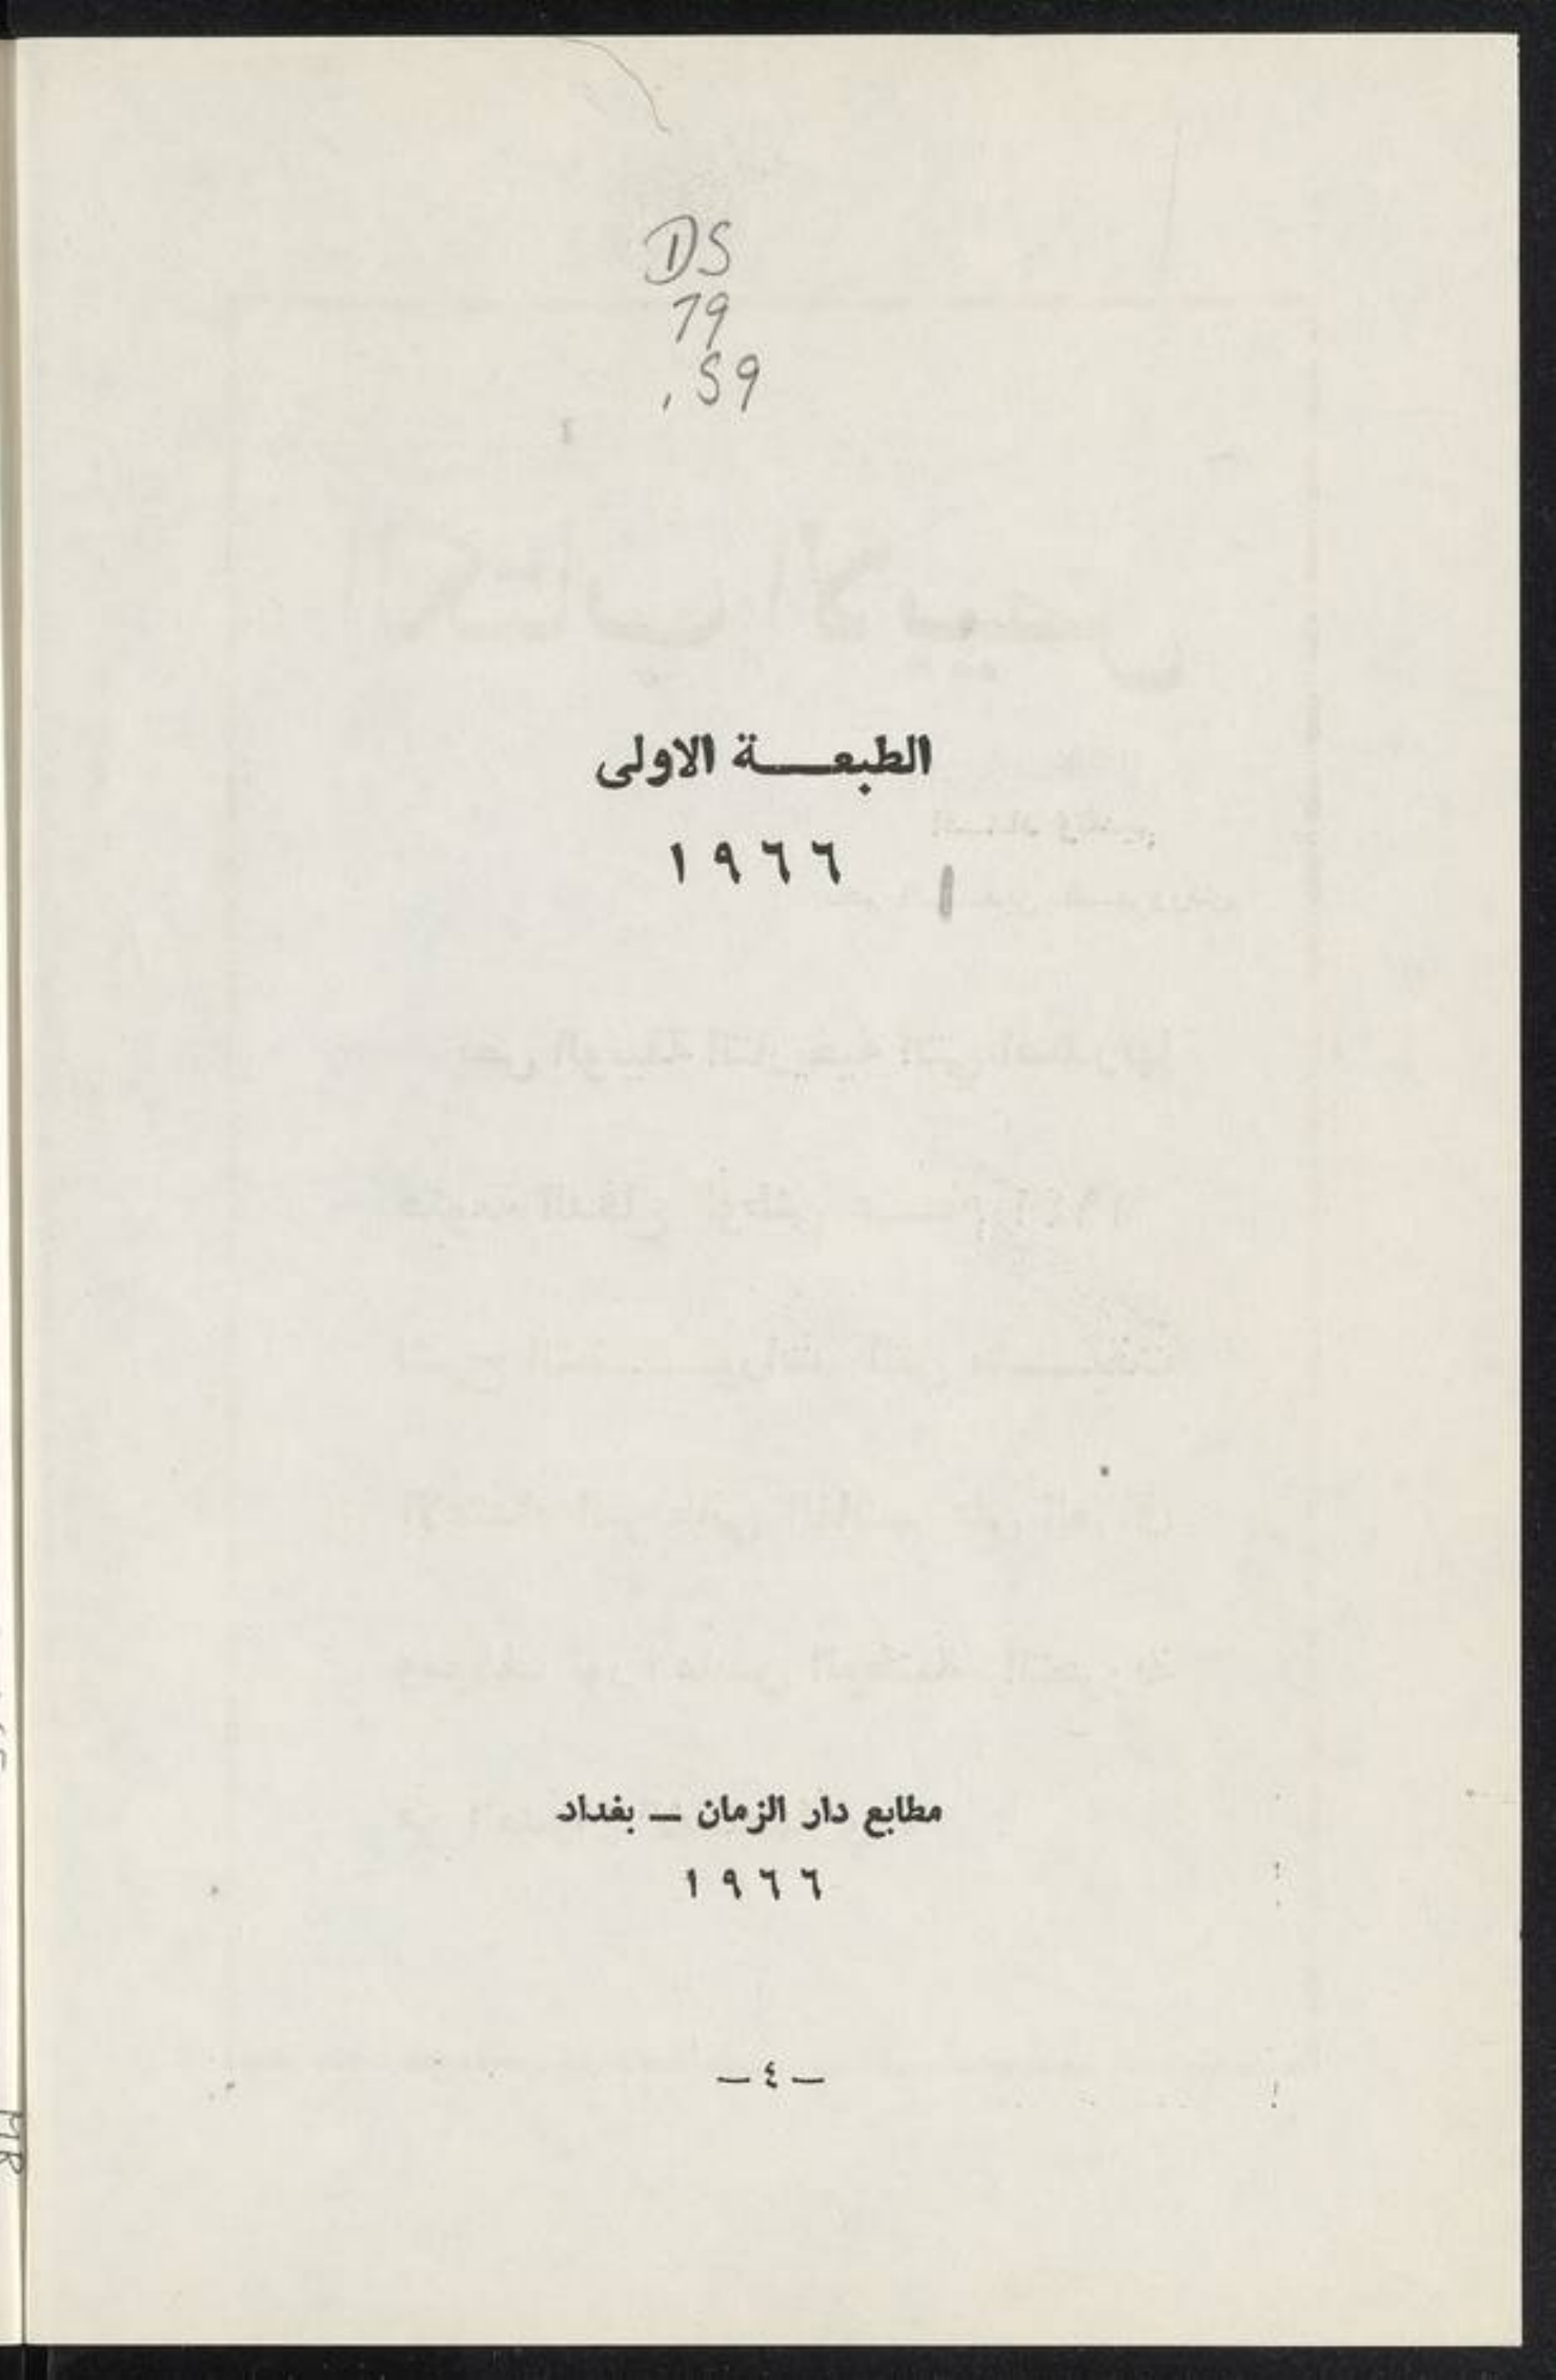 DS
79
.S9
الطبعـــة الاولى
١٩٦٦
مطابع دار الزمان ــ بغداد
١٩٦٦
ــ ٤ ــ